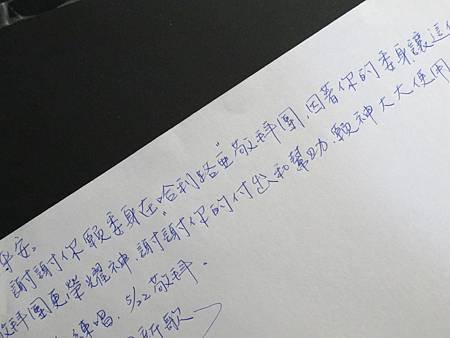 平安。
謝謝你願委身在"哈利路亞"敬拜團，因著你的委身讓這
敬拜團更榮耀神，謝謝你的付出和幫助，願神大大使用
練唱，5/22 敬拜。
新歌